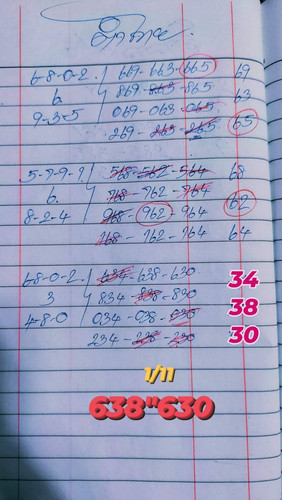 6-8-0-2. / 669-663-665 69
6 / 869-863-865 63
9-3-5 069-063-065 65
269-263-265
5-7-9-1 / 568-562-564 68
6 / 768-762-764 62
8-2-4 968-962-964 64
168-162-164
6-8-0-2. / 634-638-630 34
3 / 834-838-830 38
4-8-0 034-038-030 30
234-238-230
1/11
638"630